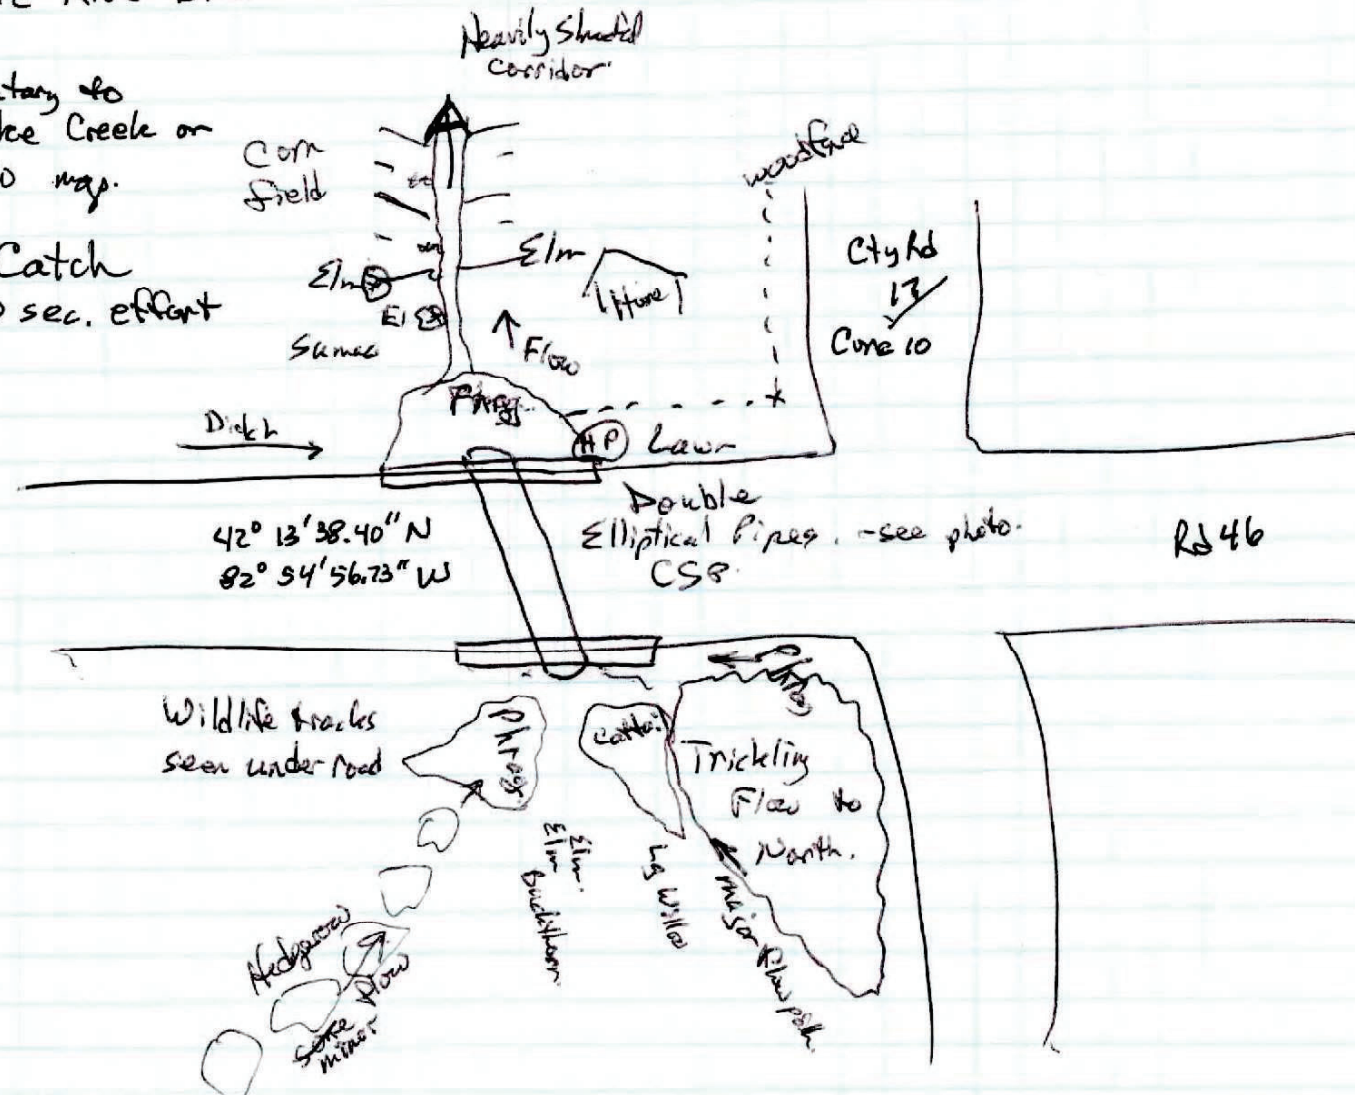 Heavily Shaded
corridor.
tary to
Creek on
map.
Catch
sec. effort
Corn
field
Elm
Elm
El
Sumac
Flow
Home
wood fence
Cty Rd
17
Conc 10
Phrag.
Ditch
HP
Lawn
42° 13' 38.40" N
82° 54' 56.73" W
Double
Elliptical Pipes. - see photo.
CS8.
Rd 46
Wildlife tracks
seen under road
Phrag.
Cattail
Phrag
Trickling
Flow to
North.
Elm
Elm.
Buckthorn
Lg Willow
Major Flow path.
Hedgerow
Some
minor
flow